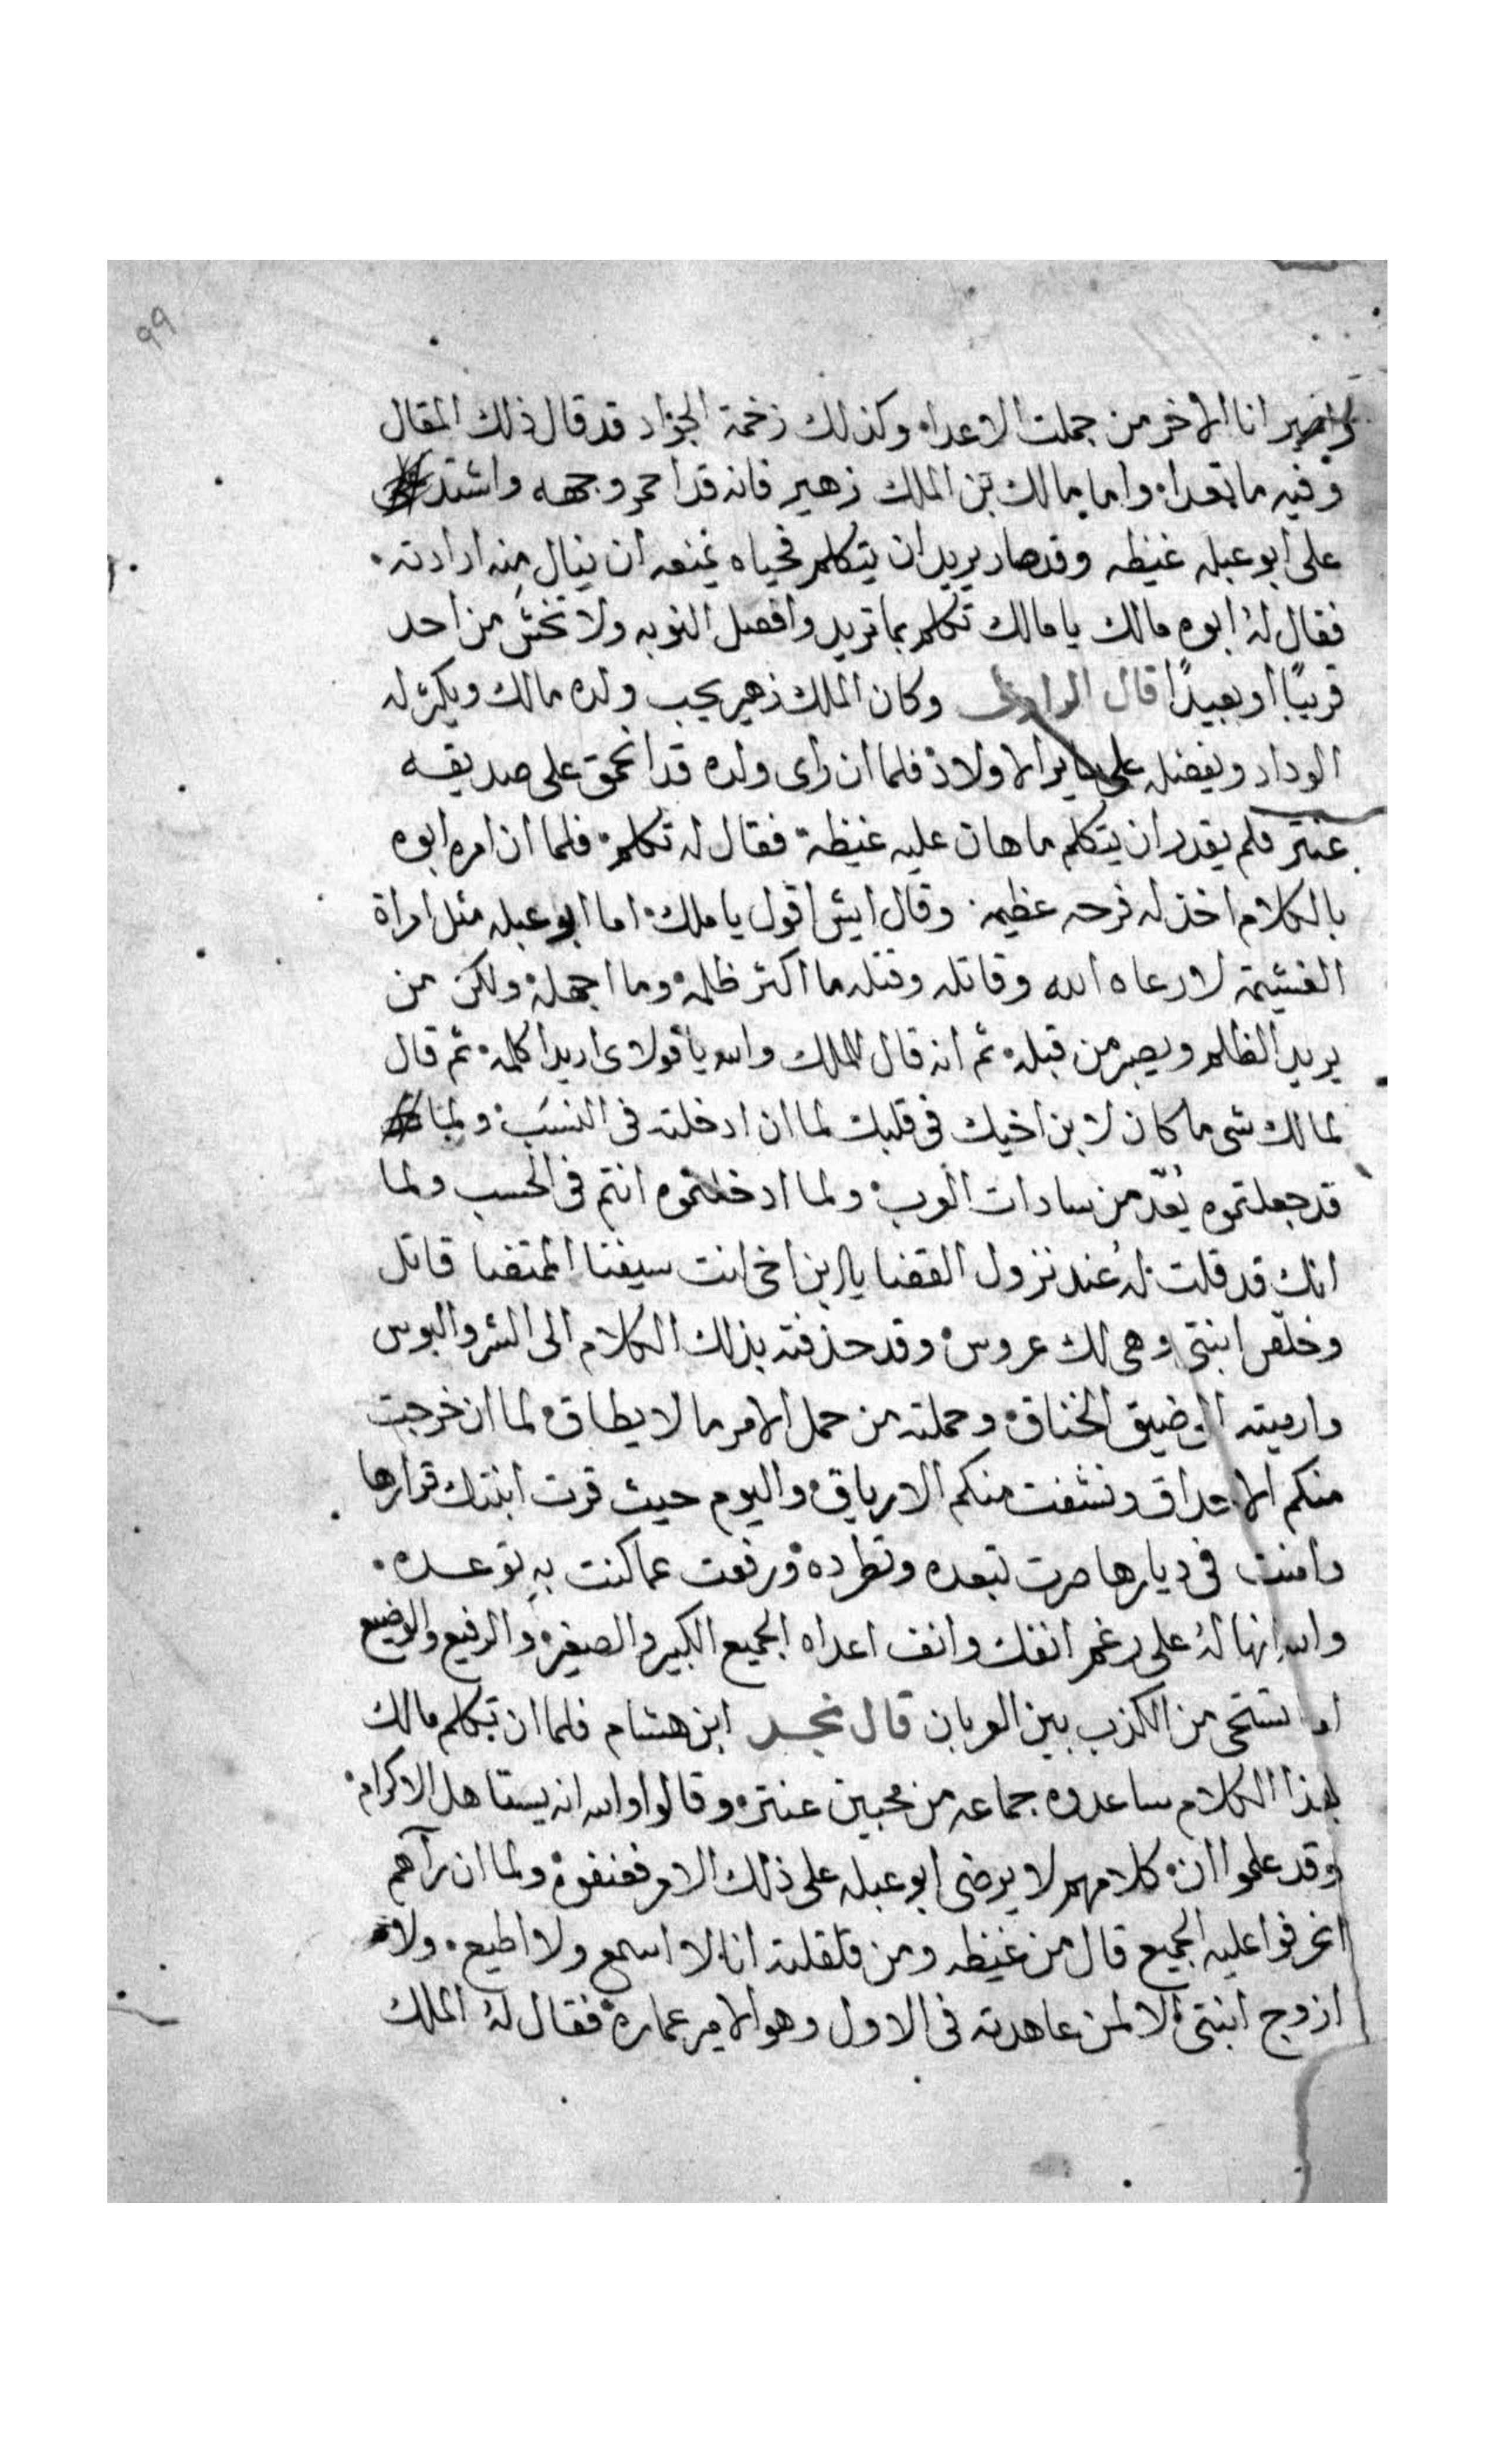 99
واصير انا الاخر من جملت الاعداء وكذلك زخمة الجواد قد قال ذلك المقال
وفيه ما تعداه واما مالك بن الملك زهير فانه قد احمر وجهه واشتد
على ابو عبله غيظه وقد صار يريد ان يتكلم فحياه يمنعه ان ينال منه ارادته
فقال له ابوه مالك يا مالك تكلم بما تريد وافصل النوبه ولا تخش من احد
قريبًا او بعيدًا قال الراوى وكان الملك زهير يحب ولده مالك ويكثر له
الوداد ويفضله على ساير الاولاد فلما ان راى ولده قد انحمق على صديقه
عنتر فلم يقدر ان يتكلم ما هان عليه غيظة فقال له تكلم فلما ان امره ابوه
بالكلام اخذ له فرحه عظيمه وقال ايش اقول يا ملك اما ابو عبله مثل امراة
لا رعاه الله وقاتله وقتله ما اكثر ظلمه وما اجهله ولكن من
يريد الظلم ويصبر من قبله ثم انه قال للملك والله يا مولاى اريد اكلمه ثم قال
لمالك شى ما كان لابن اخيك فى قلبك لما ان ادخلته فى النسب ولما
قد جعلتموه يُعدّ من سادات العرب ولما ادخلتموه انتم فى الحسب ولما
انك قد قلت له عند نزول القضا يا ابن اخى انت سيفنا المنتضا قاتل
وخلّص ابنتى وهى لك عروس وقد حذفته بذلك الكلام الى الشر والبوس
وارميته الى ضيق الخناق وحملته من حمل الامر ما لا يطاق لما ان خرجت
منكم الاحداق ونشفت منكم الارياق واليوم حيث قرت ابنتك قرارها
وامنت فى ديارها صرت تبعده وتطرده ورفعت عما كنت به توعده
والله انها له على رغم انفك وانف اعداه الجميع الكبير والصغير والرفيع والوضيع
اما تستحى من الكذب بين العربان قال نجد ابن هشام فلما ان تكلم مالك
بهذا الكلام ساعدوه جماعه من محبين عنتر وقالوا والله انه يستاهل الاكرام
وقد علموا ان كلامهم لا يرضى ابو عبله على ذلك الامر فعنفوه ولما ان رآهم
انحرفوا عليه الجميع قال من غيظه ومن قلقلته انا لا اسمع ولا اطيع ولا
ازوج ابنتى الا لمن عاهدته فى الاول وهو الامير عماره فقال له الملك